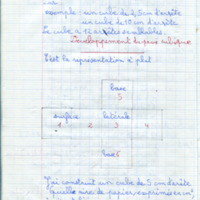 exemple : un cube de 2,5cm d'arête
un cube de 10 cm d'arête
Le cube a 12 arêtes semblables.
Développement du cube
C'est la représentation à plat
Base
5
surface latérale
1 2 3 4
Base 6
J'ai construit un cube de 5 cm d'arête
Quelle aire de papier exprimée en cm²